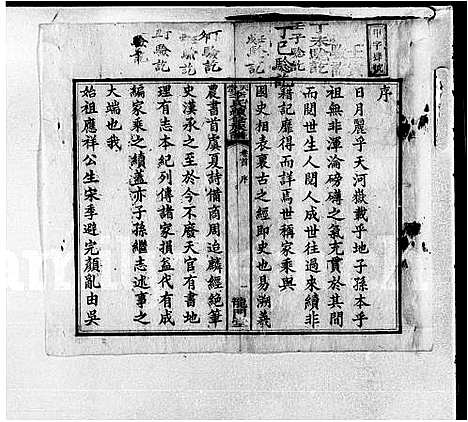 甲字號
丁未驗訖
壬子驗訖
丁巳驗訖
壬戌驗訖
驗訖
行丁驗訖
驗訖
序
日月麗乎天河嶽載乎地子孫本乎
祖無非渾淪磅礴之氣充貫於其間
而閱世生人閱人成世往過來續非
籍記靡得而詳焉世稱家乘與
國史相表裏古之經即史也易溯羲
卷首 序
一
農書首虞夏詩備商周迨麟經絶筆
史漢承之至於今不廢天官有書地
理有志本紀列傳諸家損益代有成
編家乘之續蓋亦子孫繼志述事之
大端也我
始祖應祥公生宋季避完顏亂由吳